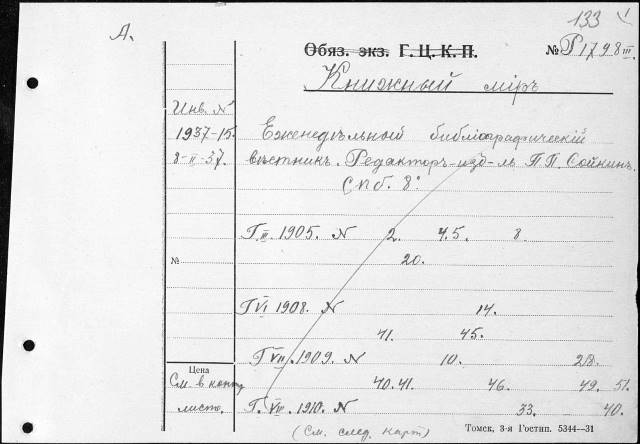 133 1
А.
Обяз. экз. Г.Ц.К.П. № Р1798 III.
Книжный мiръ
Инв. N
1937-15. Еженедѣльный библiографическiй
8-II-37. вѣстникъ. Редакторъ-изд-ль П.П. Сойкинъ.
Спб. 8°
Г. III. 1905. N 2. 4.5. 8.
№ 20.
Г VI 1908. N 14.
41. 45.
Г VII. 1909. N 10. 28.
Цена
См. в конт. 40.41. 46. 49. 51.
листо, Г. VIII. 1910. N 33. 40.
(См. след. карт) Томск, 3-я Гостип. 5344—31